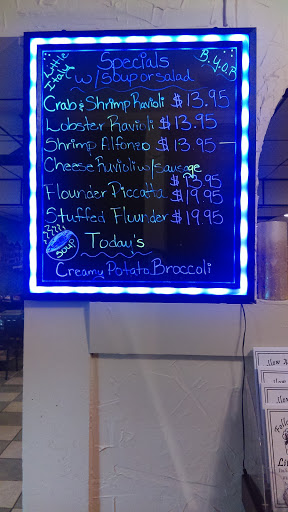 Little Italy
Specials
B.Y.O.B
w/ Soup or salad
Crab & Shrimp Ravioli $13.95
Lobster Ravioli $13.95
Shrimp Alfonso $13.95
Cheese Ravioli w/ Sausage
$13.95
Flounder Piccatta $19.95
Stuffed Flounder $19.95
Soup
Today's
Creamy Potato Broccoli